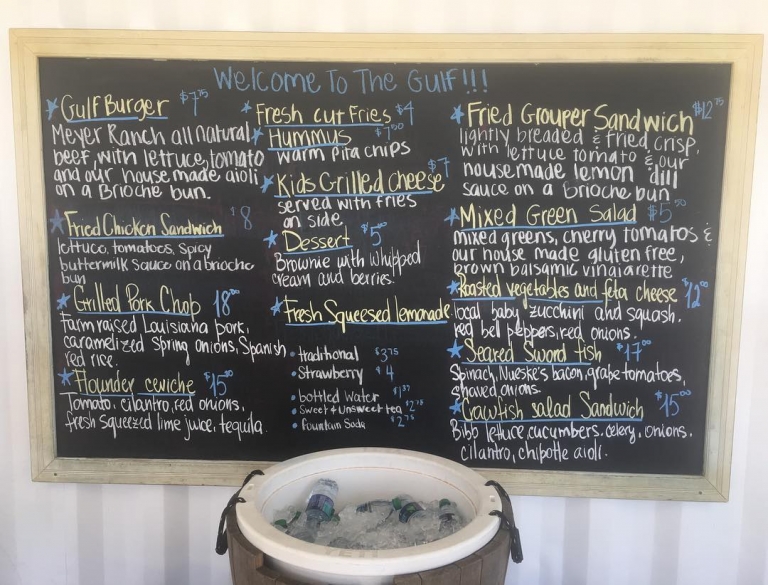 Welcome To The Gulf!!!
Gulf Burger $7.75
Meyer Ranch all natural
beef, with lettuce, tomato
and our house made aioli
on a Brioche bun.
Fried Chicken Sandwich $8
lettuce, tomatoes, spicy
buttermilk sauce on a brioche
bun
Grilled Pork Chop 18
Farm raised Louisiana pork,
caramelized spring onions, Spanish
red rice.
Flounder ceviche $15
Tomato, cilantro, red onions,
fresh squeezed lime juice, tequila.
Fresh cut Fries $4
Hummus
warm pita chips
Kids Grilled cheese $7
served with fries
on side.
Dessert $5
Brownie with whipped
cream and berries!
Fresh Squeesed lemonade
• traditional $3.75
• Strawberry $4
• bottled Water
• Sweet & Unsweet tea $2.75
• fountain Soda $2.75
Fried Grouper Sandwich $12.75
lightly breaded & fried crisp,
with lettuce tomato & our
housemade lemon dill
sauce on a brioche bun
Mixed Green Salad $5.50
mixed greens, cherry tomatos &
our house made gluten free,
brown balsamic vinaiarette
Roasted vegetables and feta cheese $12
local baby zucchini and squash.
red bell peppers, red onions.
Seared Sword fish $17
Spinach, Nueske's bacon, grape tomatoes,
shaved onions
Crawfish salad Sandwich $15
Bibb lettuce, cucumbers, celery, onions,
cilantro, chipotle aioli.
YETI